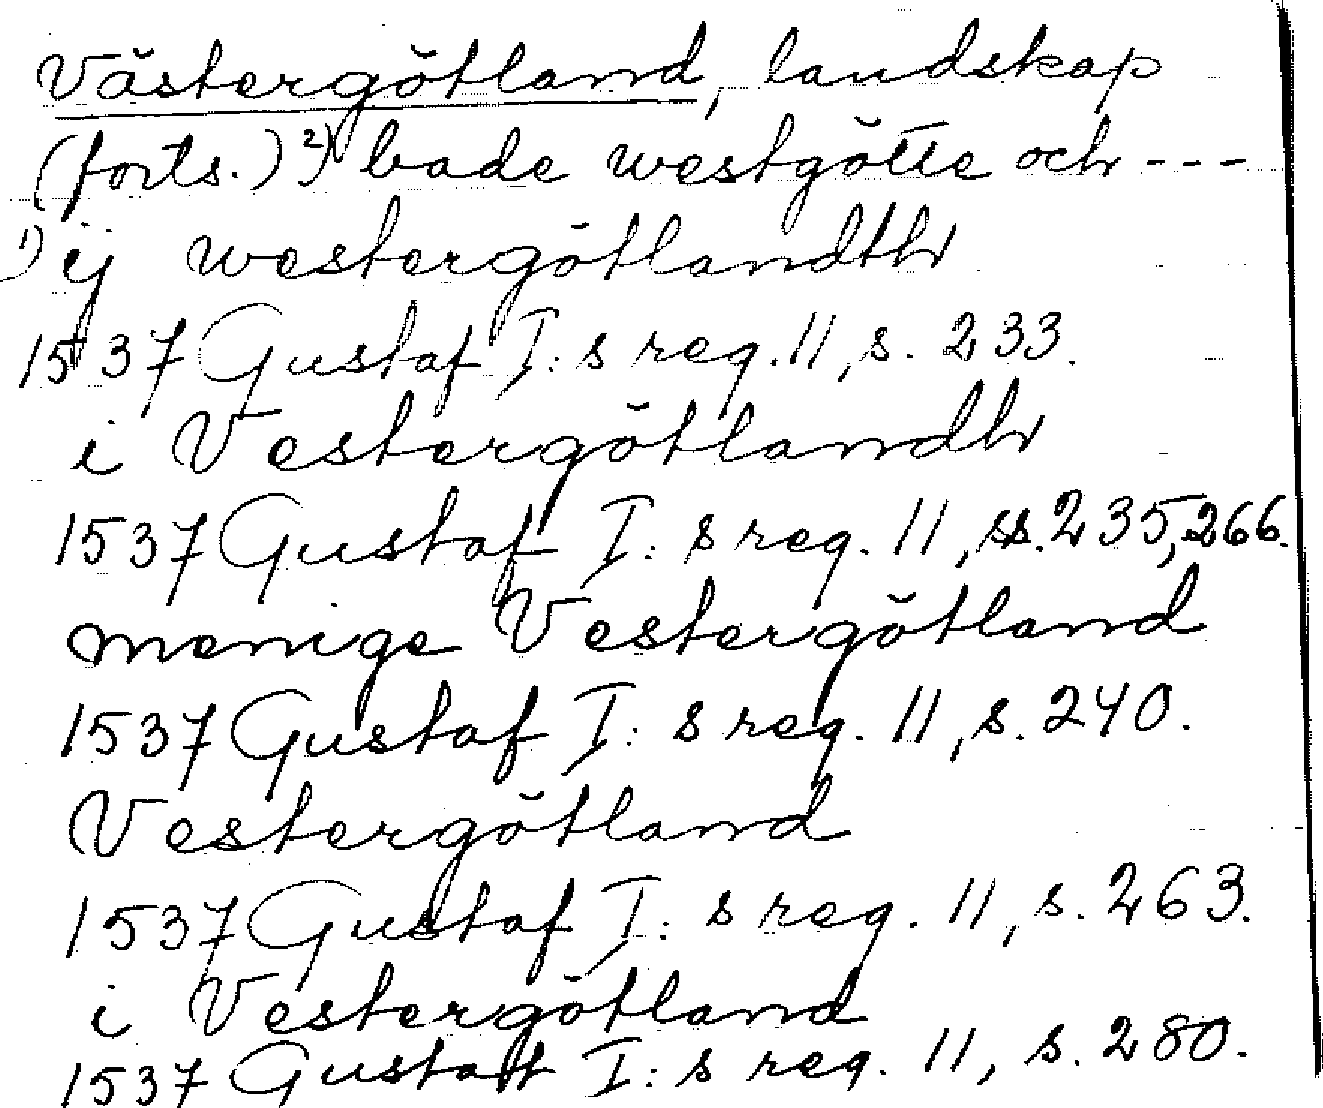 Västergötland, landskap
(forts.) 2) bade westgötte och ---
1) ij westergötlandth
1537 Gustaf I:s reg. 11, s. 233.
i Vestergötlandh
1537 Gustaf I:s reg. 11, ss. 235, 266.
menige Vestergötland
1537 Gustaf I:s reg. 11, s. 240.
Vestergötland
1537 Gustaf I:s reg. 11, s. 263.
i Vestergötland
1537 Gustaf I:s reg. 11, s. 280.